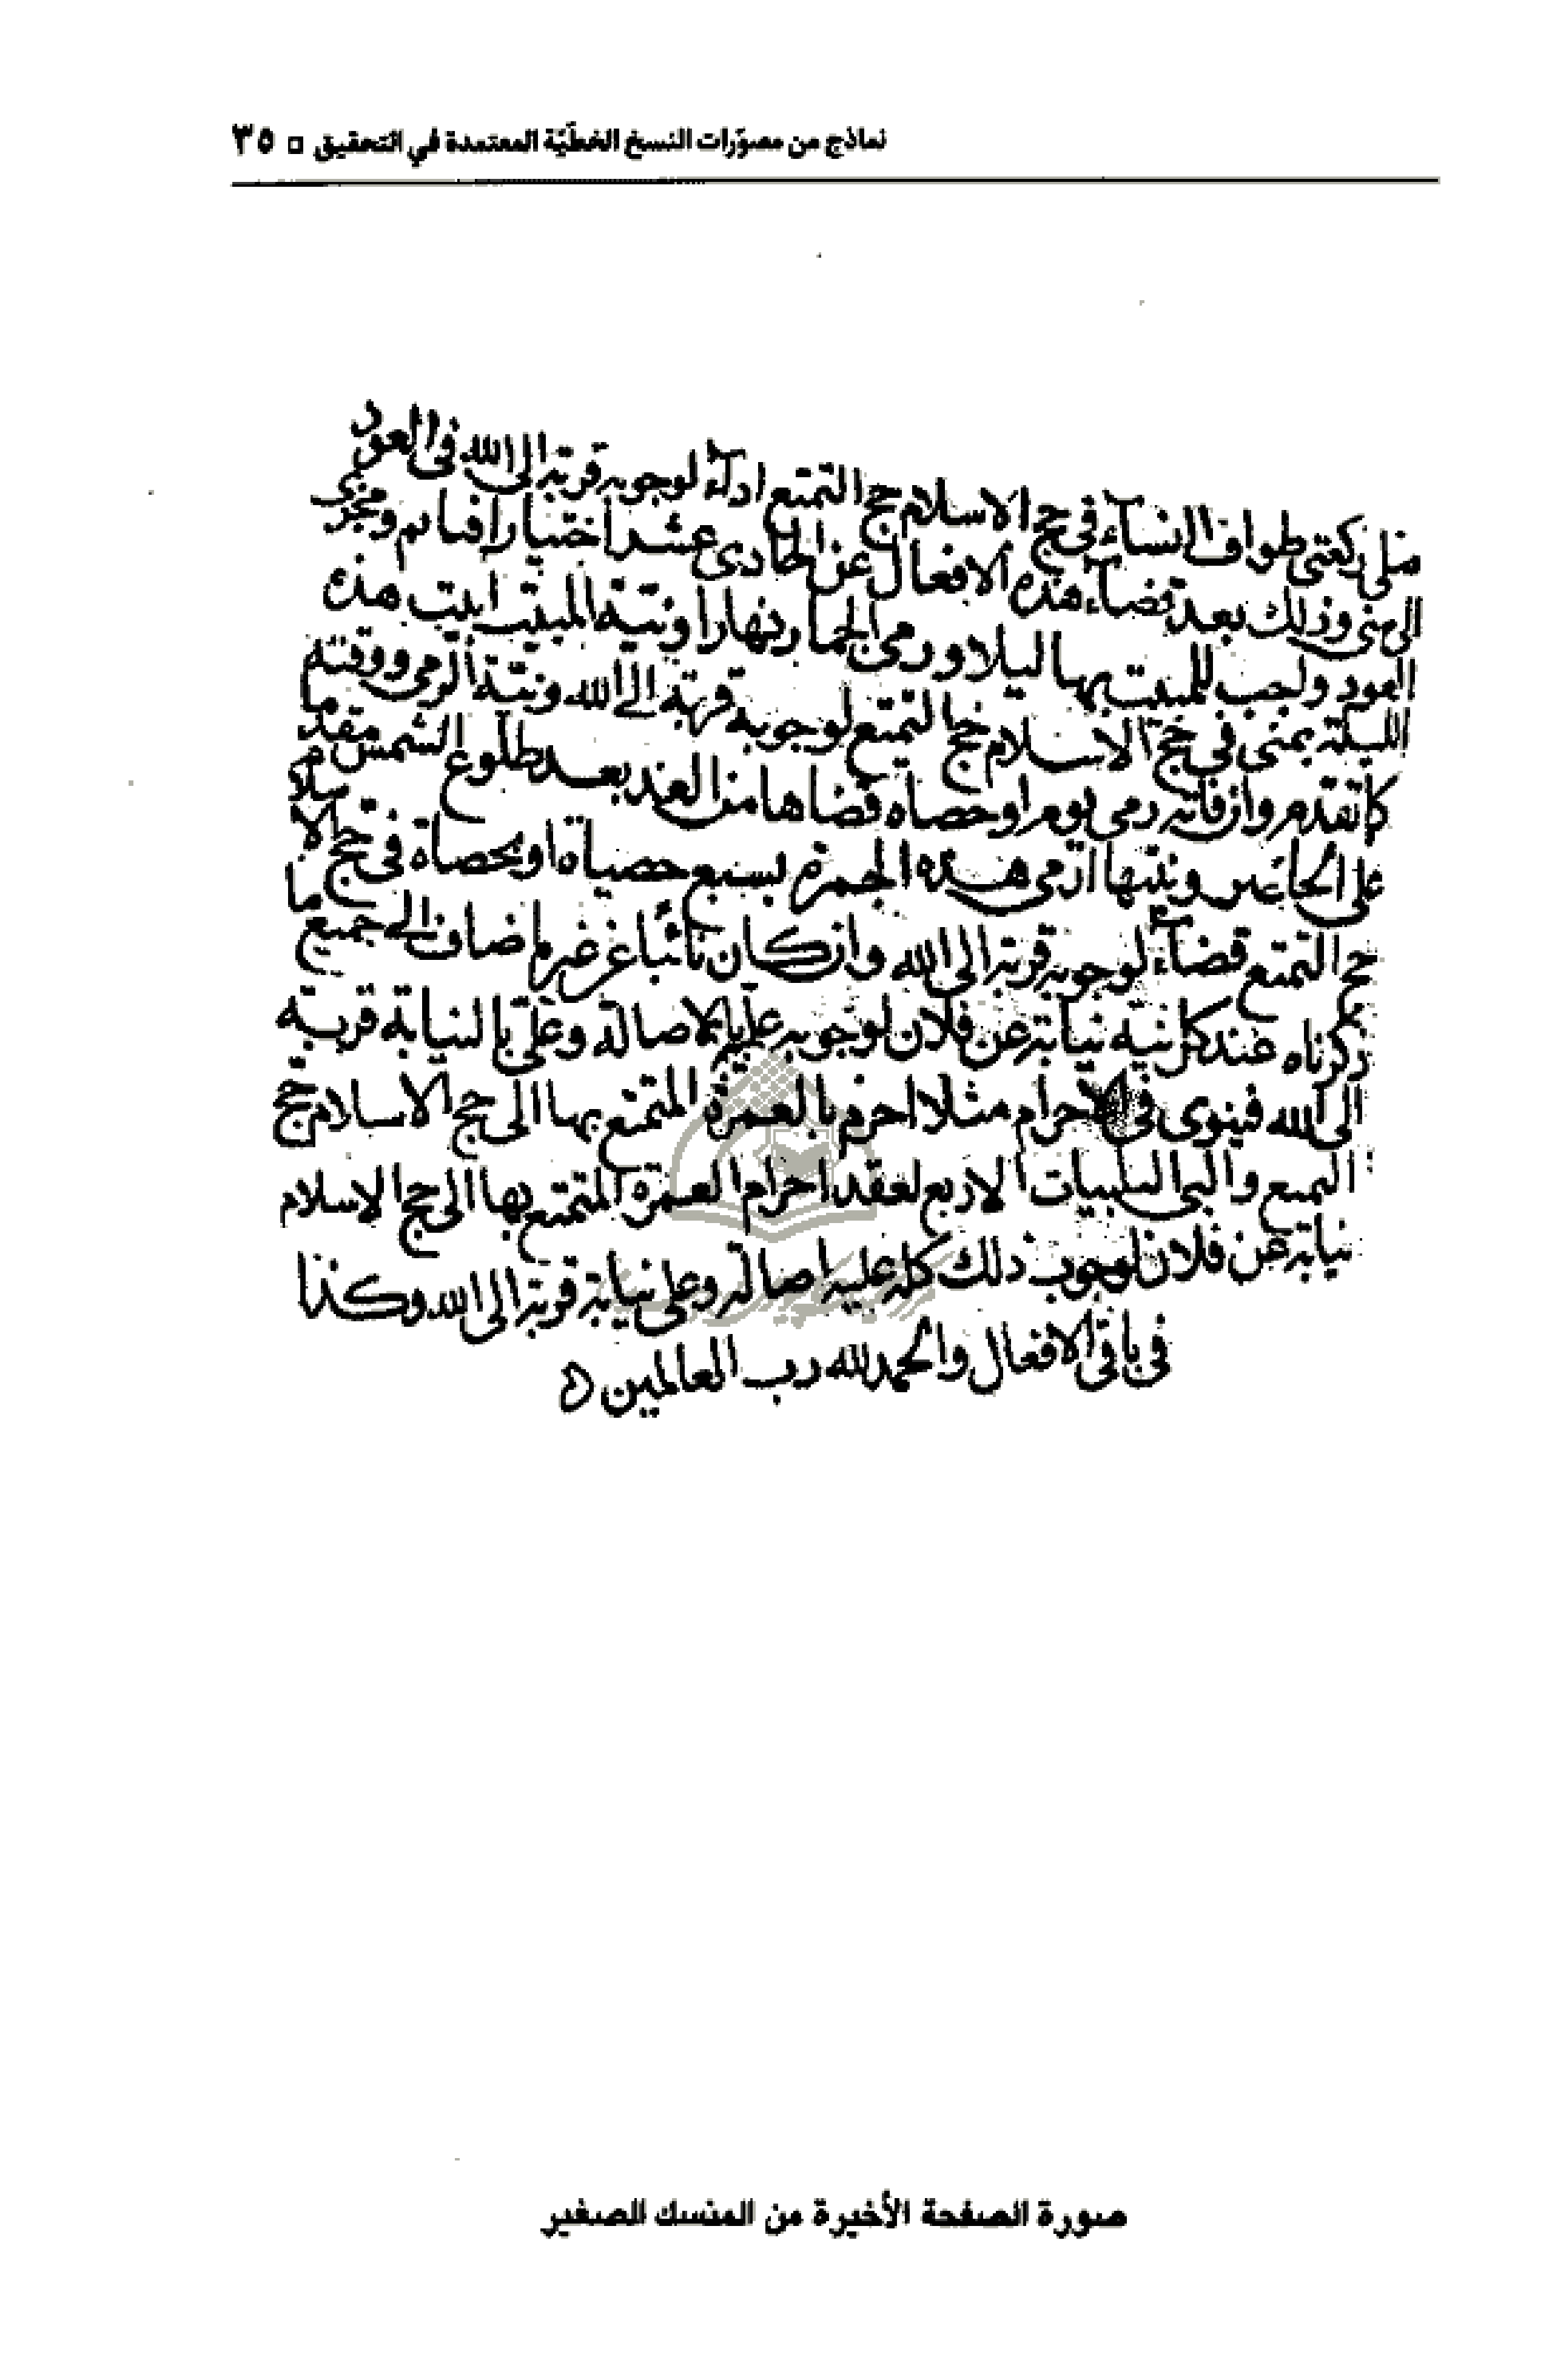 نماذج من مصوّرات النسخ الخطّيّة المعتمدة في التحقيق ▫ ٣٥
صلى ركعتى طواف النساء فى حج الاسلام حج التمتع اداء لوجوبه قربة الى الله فى العود
الى منى وذلك بعد قضاء هذه الافعال عن الحادى عشر اختيارا فيأثم ويجزى
العود واجب للمبيت بها ليلا ورمى الجمار نهارا ونية المبيت ابيت هذه
الليلة بمنى فى حج الاسلام حج التمتع لوجوبه قربة الى الله ونية الرمى ووقته
كما تقدم وان فاته رمى يوم او حصاه قضاها من الغد بعد طلوع الشمس مقدما
على الحاضر ونيتها ارمى هذه الجمرة بسبع حصياة او بحصاة فى حج الاسلام
حج التمتع قضاء لوجوبه قربة الى الله وان كان نائبا عن غيره اضاف الى جميع ما
ذكرناه عند كل نية نيابة عن فلان لوجوبه عليه بالاصالة وعلى بالنيابة قربة
الى الله فينوى فى الاحرام مثلا احرم بالعمرة المتمتع بها الى حج الاسلام حج
التمتع والبى التلبيات الاربع لعقد احرام العمرة المتمتع بها الى حج الاسلام
نيابة عن فلان لوجوب ذلك كله عليه اصالة وعلى نيابة قربة الى الله وكذا
فى باقى الافعال والحمد لله رب العالمين
صورة الصفحة الأخيرة من المنسك الصغير